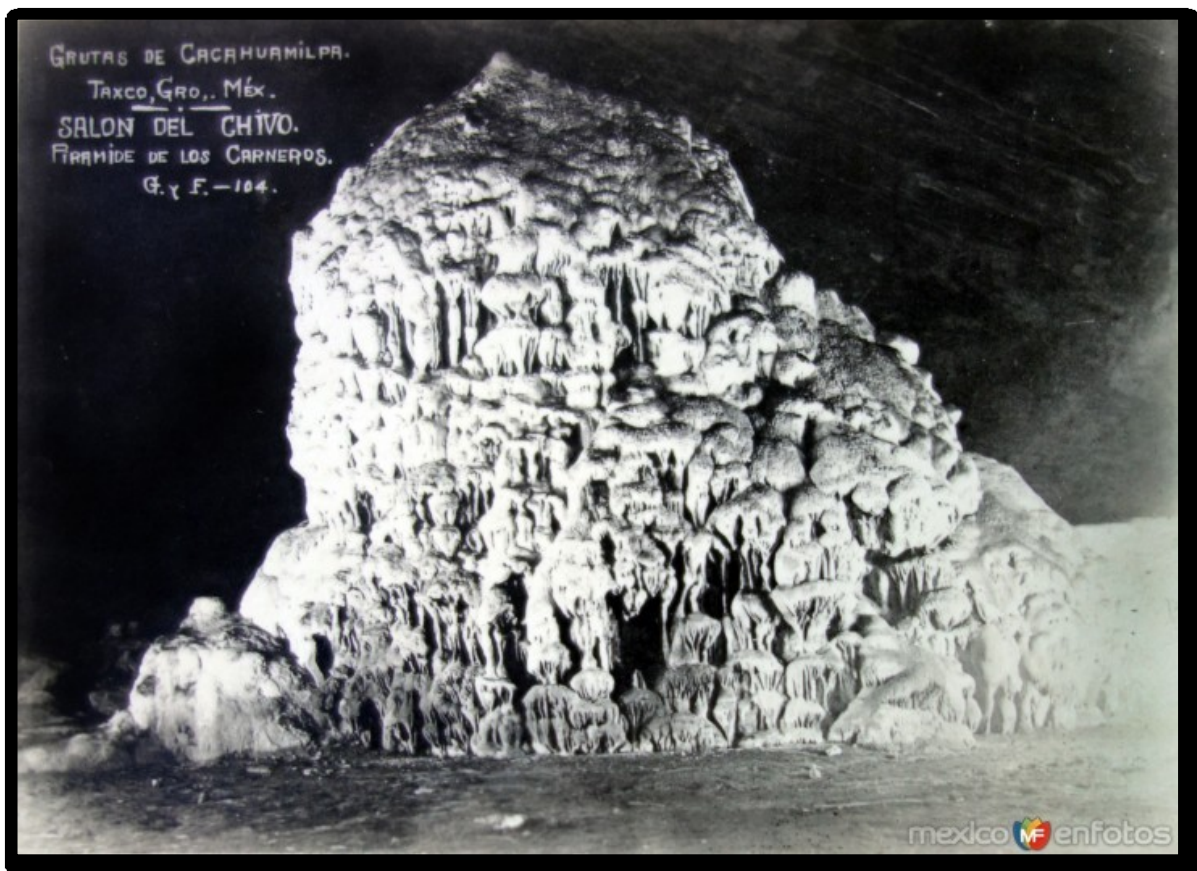 GRUTAS DE CACAHUAMILPA.
TAXCO, GRO,. MÉX.
SALON DEL CHIVO.
PIRAMIDE DE LOS CARNEROS.
G. Y F. - 104.
mexico MF enfotos